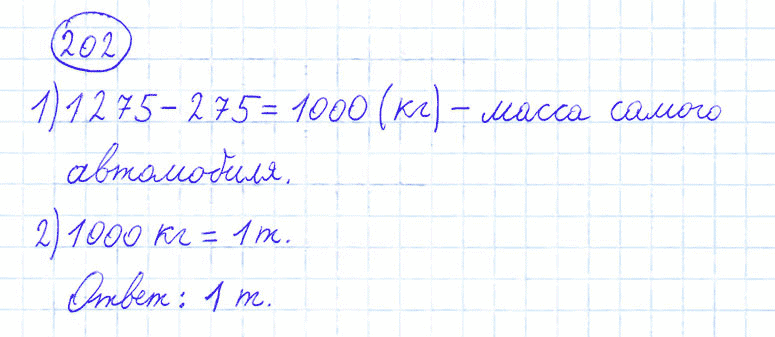 202
1) 1275 - 275 = 1000 (кг) - масса самого
автомобиля.
2) 1000 кг = 1 т.
Ответ: 1 т.